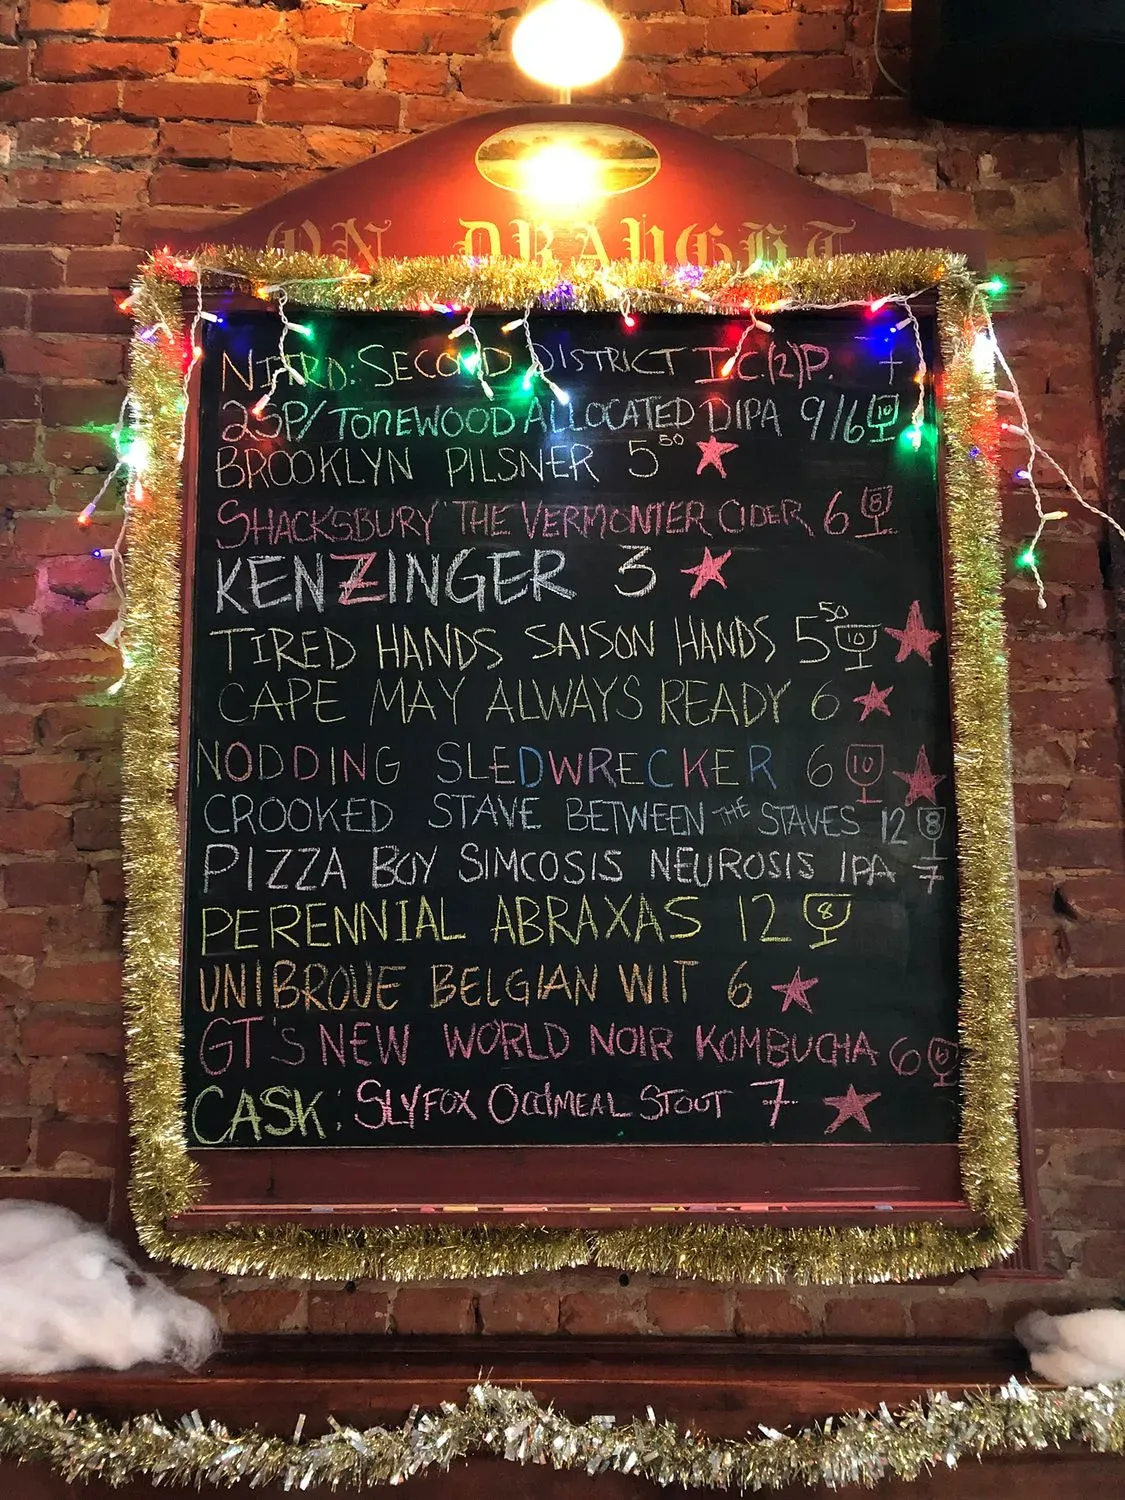 ON DRAUGHT
NITRO: SECOND DISTRICT I.C(2)P. 7
2SP/TONEWOOD ALLOCATED DIPA 9/6 10
BROOKLYN PILSNER 5 50
SHACKSBURY THE VERMONTER CIDER 6 8
KENZINGER 3
TIRED HANDS SAISON HANDS 5 50 10
CAPE MAY ALWAYS READY 6
NODDING SLEDWRECKER 6 10
CROOKED STAVE BETWEEN THE STAVES 12 8
PIZZA BOY SIMCOSIS NEUROSIS IPA 7
PERENNIAL ABRAXAS 12 8
UNIBROUE BELGIAN WIT 6
GT'S NEW WORLD NOIR KOMBUCHA 6
CASK: SLYFOX OATMEAL STOUT 7